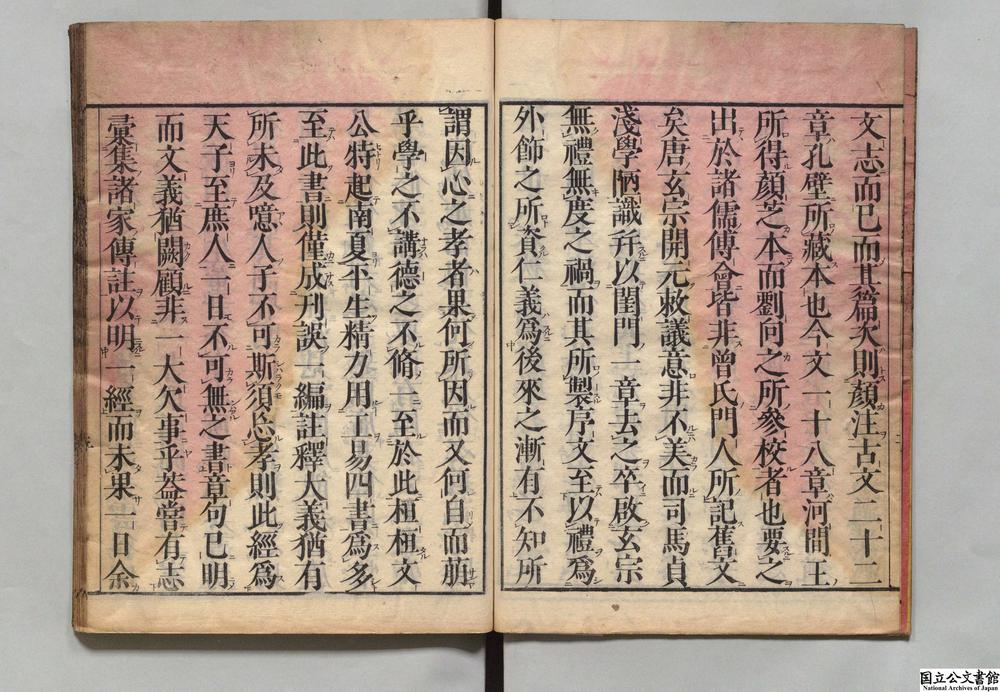 文志而已而其篇次則顔注古文二十二
章孔壁所藏本也今文一十八章河間王
所得顔芝本而劉向之所參校者也要之
出於諸儒傅會皆非曾氏門人所記舊文
矣唐玄宗開元敕議意非不美而司馬貞
淺學陋識幷以閨門一章去之卒啟玄宗
無禮無度之禍而其所製序文至以禮爲
外飾之所資仁義爲後來之漸有不知所
謂因心之孝者果何所因而又何自而萠
乎學之不講德之不脩一至於此桓桓文
公特起南夏平生精力用工易四書爲多
至此書則僅成刊誤一編註釋大義猶有
所未及噫人子不可斯須忘孝則此經爲
天子至庶人一日不可無之書章句已明
而文義猶闕顧非一大欠事乎葢嘗有志
彙集諸家傳註以明一經而未果一日余
国立公文書館
National Archives of Japan